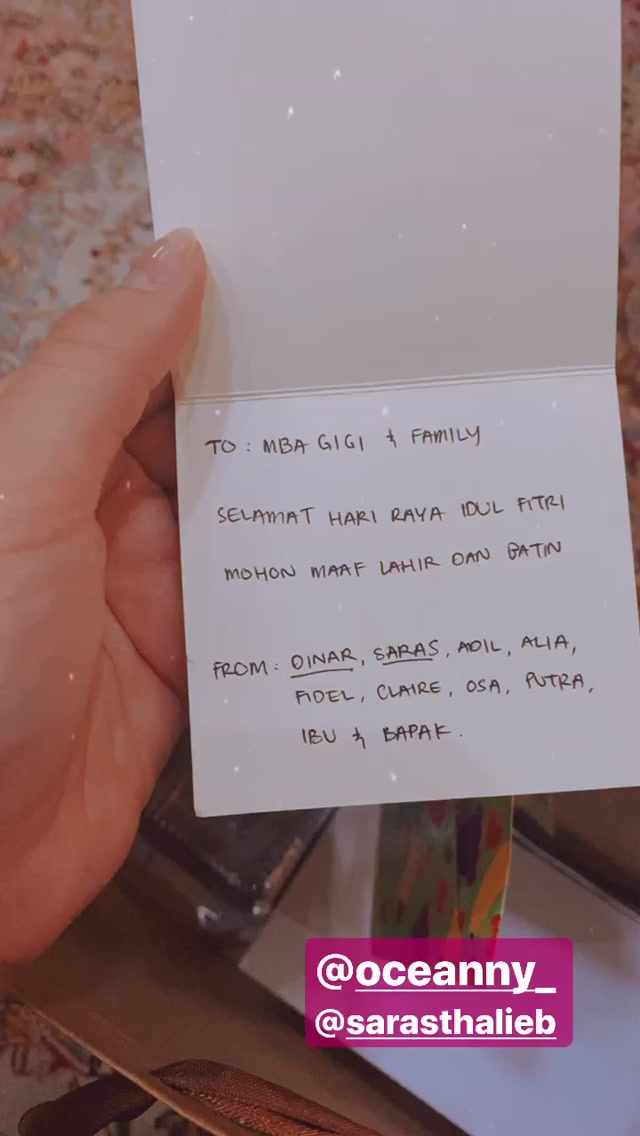 TO : MBA GIGI & FAMILY
SELAMAT HARI RAYA IDUL FITRI
MOHON MAAF LAHIR DAN BATIN
FROM : DINAR, SARAS, ADIL, ALIA,
FIDEL, CLAIRE, OSA, PUTRA,
IBU & BAPAK.
@oceanny_
@sarasthalieb